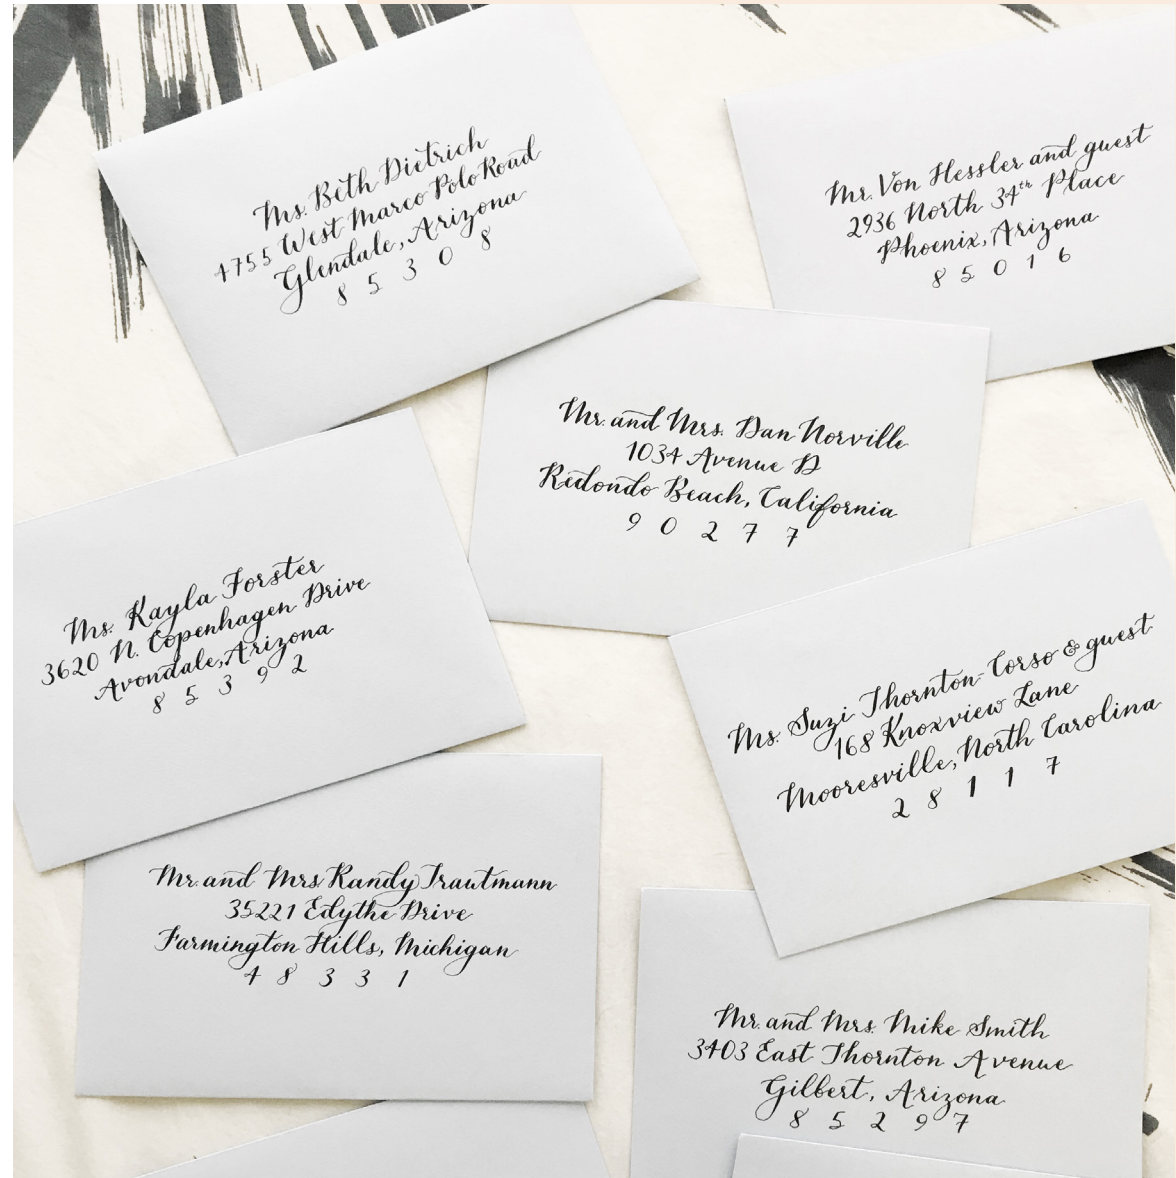 Ms. Beth Dietrich
4755 West Marco Polo Road
Glendale, Arizona
8 5 3 0 8
Mr. Von Hessler and guest
2936 North 34th Place
Phoenix, Arizona
8 5 0 1 6
Mr. and Mrs. Dan Norville
1034 Avenue D
Redondo Beach, California
9 0 2 7 7
Ms. Kayla Forster
3620 N. Copenhagen Drive
Avondale, Arizona
8 5 3 9 2
Ms. Suzi Thornton-Corso & guest
168 Knoxview Lane
Mooresville, North Carolina
2 8 1 1 7
Mr. and Mrs. Randy Trautmann
35221 Edythe Drive
Farmington Hills, Michigan
4 8 3 3 1
Mr. and Mrs. Mike Smith
3403 East Thornton Avenue
Gilbert, Arizona
8 5 2 9 7